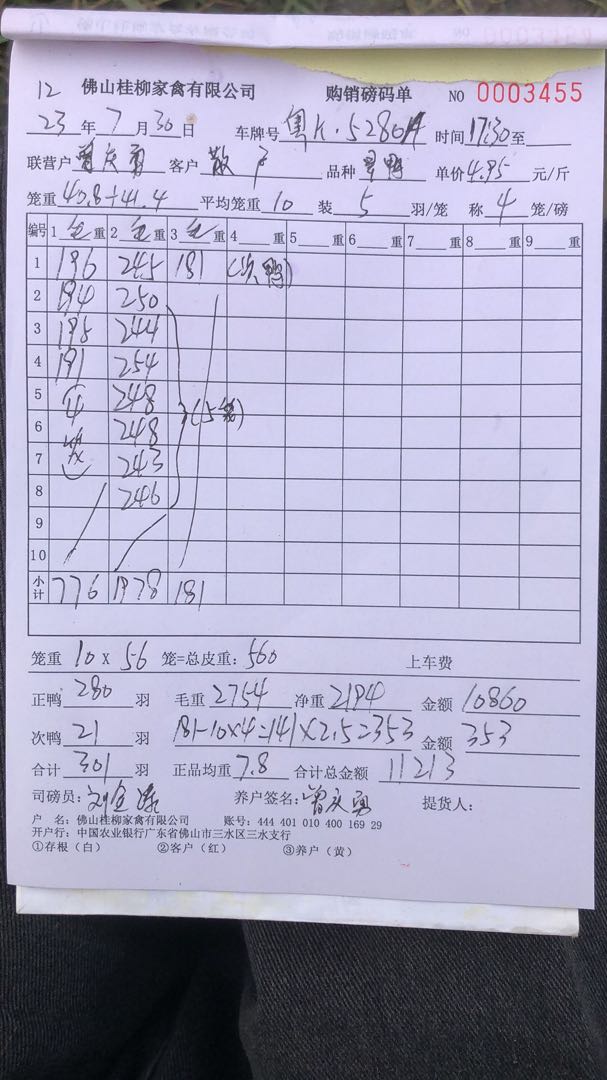 12 佛山桂柳家禽有限公司 购销磅码单 NO 0003455
23 年 7 月 30 日 车牌号 粤K·5280A 时间 17:30 至
联营户 曾庆勇 客户 散户 品种 单价 4.95 元/斤
笼重 40.8÷41.4 平均笼重 10 装 5 羽/笼 称 4 笼/磅
编号 1 毛 重 2 毛 重 3 毛 重 4 重 5 重 6 重 7 重 8 重 9 重
1 196 245 181 (次鸭)
2 194 250
3 195 244
4 191 254
5 (4 248 (5笼)
6 笼 248
7 ) 243
8 246
9
10
小计 776 1978 181
笼重 10 X 56 笼=总皮重: 560 上车费
正鸭 280 羽 毛重 2754 净重 2194 金额 10860
次鸭 21 羽 181-10×4=141×2.5=353 金额 353
合计 301 羽 正品均重 7.8 合计总金额 11213
司磅员: 养户签名: 曾庆勇 提货人:
户 名: 佛山桂柳家禽有限公司 账号: 444 401 010 400 169 29
开户行: 中国农业银行广东省佛山市三水区三水支行
①存根(白) ②客户(红) ③养户(黄)